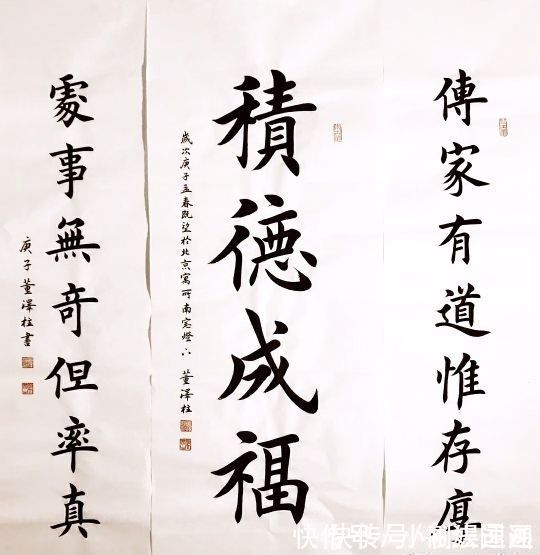 傳家有道惟存厚
積德成福
歲次庚子孟春既望於北京寓所南窓燈下 董澤柱
處事無奇但率真
庚子董澤柱書